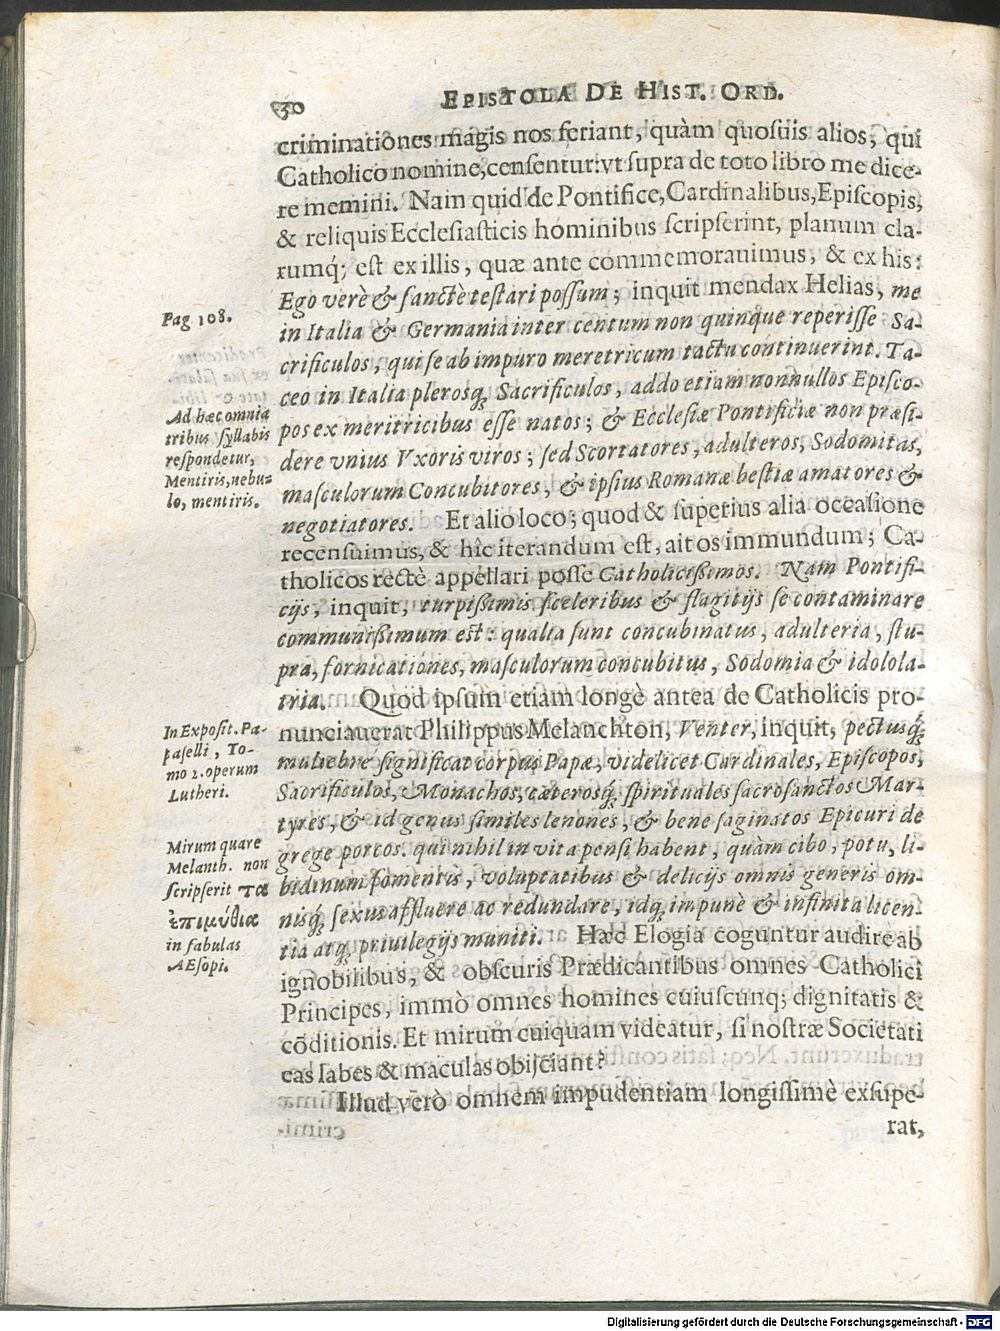 30
EPISTOLA DE HIST. ORD.
criminationes magis nos feriant, quàm quosuis alios, qui
Catholico nomine, censentur: vt supra de toto libro me dice-
re memini. Nam quid de Pontifice, Cardinalibus, Episcopis,
& reliquis Ecclesiasticis hominibus scripserint, planum cla-
rumq́; est ex illis, quæ ante commemorauimus, & ex his:
Ego verè & sanctè testari possum; inquit mendax Helias, me
in Italia & Germania inter centum non quinque reperisse Sa-
crificulos, qui se ab impuro meretricum tactu continuerint. Ta-
ceo in Italia plerosq́; Sacrificulos, addo etiam nonnullos Episco-
pos ex meritricibus esse natos; & Ecclesiæ Pontificiæ non præsi-
dere vnius Vxoris viros; sed Scortatores, adulteros, Sodomitas,
masculorum Concubitores, & ipsius Romanæ bestiæ amatores &
negotiatores. Et alio loco; quod & superius alia occasione
recensuimus, & hîc iterandum est, ait os immundum; Ca-
tholicos rectè appellari posse Catholicissimos. Nam Pontifi-
cijs, inquit, turpissimis sceleribus & flagitijs se contaminare
communissimum est: qualia sunt concubinatus, adulteria, stu-
pra, fornicationes, masculorum concubitus, Sodomia & idolola-
tria. Quod ipsum etiam longè antea de Catholicis pro-
nunciauerat Philippus Melanchton, Venter, inquit, pectusq́;
muliebre significat corpus Papæ, videlicet Cardinales, Episcopos,
Sacrificulos, Monachos, cæterosq́; spirituales sacrosanctos Mar-
tyres, & id genus similes lenones, & bene saginatos Epicuri de
grege porcos. qui nihil in vita pensi habent, quàm cibo, potu, li-
bidinum fomentis, voluptatibus & delicijs omnis generis om-
nisq́; sexus affluere ac redundare, idq́; impunè & infinita licen-
tia atq́; priuilegijs muniti. Hæc Elogia coguntur audire ab
ignobilibus, & obscuris Prædicantibus omnes Catholici
Principes, immò omnes homines cuiuscunq; dignitatis &
cõditionis. Et mirum cuiquam videatur, si nostræ Societati
eas labes & maculas obijciant?
Illud verò omnem impudentiam longissimè exsupe-
rat,
Pag 108.
Ad hæc omnia
tribus syllabis
respondetur,
Mentiris, nebu-
lo, mentiris.
In Exposit. Pa-
paselli, To-
mo 2. operum
Lutheri.
Mirum quare
Melanth. non
scripserit τὰ
ἐπιμύθια
in fabulas
AEsopi.
Digitalisierung gefördert durch die Deutsche Forschungsgemeinschaft - DFG